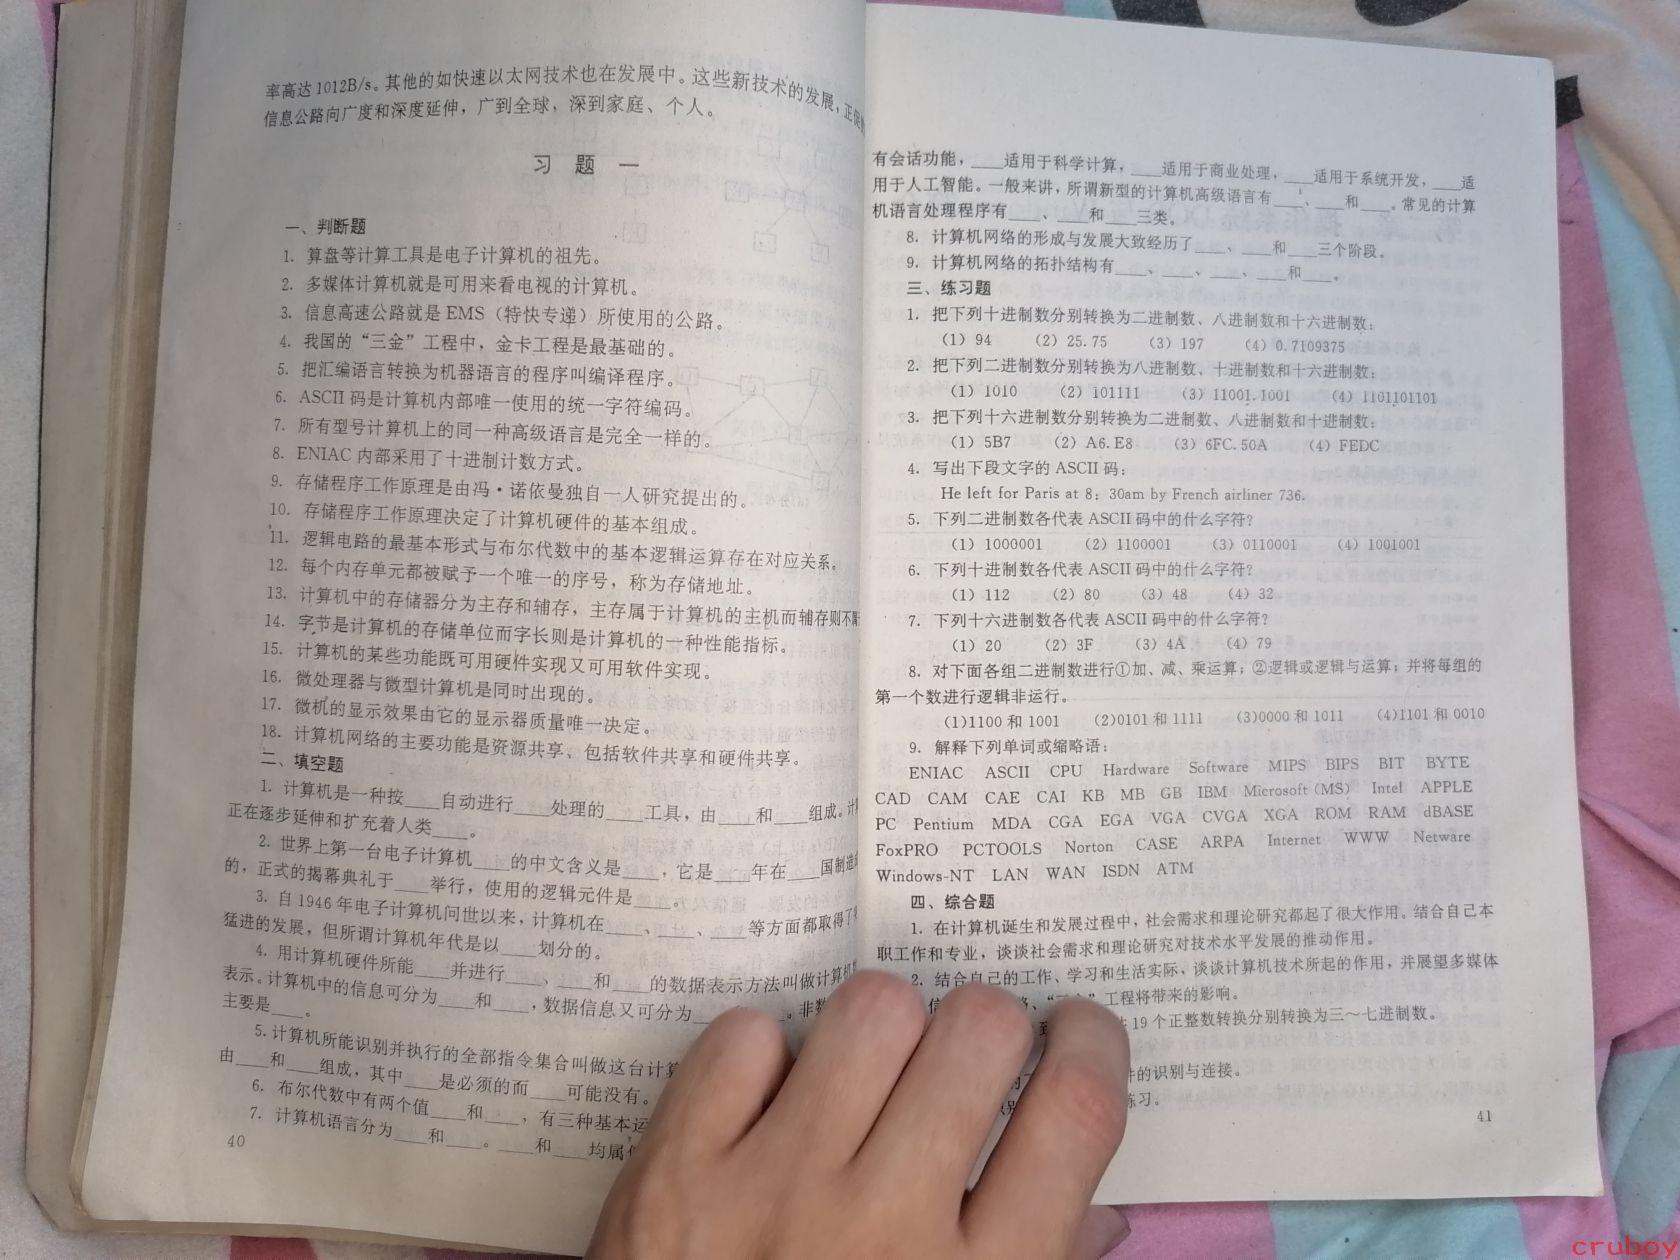 率高达1012B/s。其他的如快速以太网技术也在发展中。这些新技术的发展，正促
信息公路向广度和深度延伸，广到全球，深到家庭、个人。
习 题 一
一、判断题
1. 算盘等计算工具是电子计算机的祖先。
2. 多媒体计算机就是可用来看电视的计算机。
3. 信息高速公路就是EMS（特快专递）所使用的公路。
4. 我国的“三金”工程中，金卡工程是最基础的。
5. 把汇编语言转换为机器语言的程序叫编译程序。
6. ASCII码是计算机内部唯一使用的统一字符编码。
7. 所有型号计算机上的同一种高级语言是完全一样的。
8. ENIAC内部采用了十进制计数方式。
9. 存储程序工作原理是由冯·诺依曼独自一人研究提出的。
10. 存储程序工作原理决定了计算机硬件的基本组成。
11. 逻辑电路的最基本形式与布尔代数中的基本逻辑运算存在对应关系。
12. 每个内存单元都被赋予一个唯一的序号，称为存储地址。
13. 计算机中的存储器分为主存和辅存，主存属于计算机的主机而辅存则不
14. 字节是计算机的存储单位而字长则是计算机的一种性能指标。
15. 计算机的某些功能既可用硬件实现又可用软件实现。
16. 微处理器与微型计算机是同时出现的。
17. 微机的显示效果由它的显示器质量唯一决定。
18. 计算机网络的主要功能是资源共享、包括软件共享和硬件共享。
二、填空题
1. 计算机是一种按____自动进行____处理的____工具，由____和____组成。计
正在逐步延伸和扩充着人类____。
2. 世界上第一台电子计算机____的中文含义是____，它是____年在____国制造
的，正式的揭幕典礼于____举行，使用的逻辑元件是____。
3. 自1946年电子计算机问世以来，计算机在____、____、____等方面都取得了
猛进的发展，但所谓计算机年代是以____划分的。
4. 用计算机硬件所能____并进行____、____和____的数据表示方法叫做计算机
表示。计算机中的信息可分为____和____，数据信息又可分为____ 。非数
主要是____。
5. 计算机所能识别并执行的全部指令集合叫做这台计算
由____和____组成，其中____是必须的而____可能没有。
6. 布尔代数中有两个值____和____，有三种基本运
7. 计算机语言分为____和____。____和____均属
40
有会话功能，____适用于科学计算，____适用于商业处理，____适用于系统开发，____适
用于人工智能。一般来讲，所谓新型的计算机高级语言有____、____和____。常见的计算
机语言处理程序有____、____和____三类。
8. 计算机网络的形成与发展大致经历了____、____和____三个阶段。
9. 计算机网络的拓扑结构有____、____、____、____和____。
三、练习题
1. 把下列十进制数分别转换为二进制数、八进制数和十六进制数：
（1）94 （2）25.75 （3）197 （4）0.7109375
2. 把下列二进制数分别转换为八进制数、十进制数和十六进制数：
（1）1010 （2）101111 （3）11001.1001 （4）1101101101
3. 把下列十六进制数分别转换为二进制数、八进制数和十进制数：
（1）5B7 （2）A6.E8 （3）6FC.50A （4）FEDC
4. 写出下段文字的ASCII码：
He left for Paris at 8：30am by French airliner 736.
5. 下列二进制数各代表ASCII码中的什么字符？
（1）1000001 （2）1100001 （3）0110001 （4）1001001
6. 下列十进制数各代表ASCII码中的什么字符？
（1）112 （2）80 （3）48 （4）32
7. 下列十六进制数各代表ASCII码中的什么字符？
（1）20 （2）3F （3）4A （4）79
8. 对下面各组二进制数进行①加、减、乘运算；②逻辑或逻辑与运算；并将每组的
第一个数进行逻辑非运行。
（1）1100和1001 （2）0101和1111 （3）0000和1011 （4）1101和0010
9. 解释下列单词或缩略语：
ENIAC ASCII CPU Hardware Software MIPS BIPS BIT BYTE
CAD CAM CAE CAI KB MB GB IBM Microsoft（MS） Intel APPLE
PC Pentium MDA CGA EGA VGA CVGA XGA ROM RAM dBASE
FoxPRO PCTOOLS Norton CASE ARPA Internet WWW Netware
Windows-NT LAN WAN ISDN ATM
四、综合题
1. 在计算机诞生和发展过程中，社会需求和理论研究都起了很大作用。结合自己本
职工作和专业，谈谈社会需求和理论研究对技术水平发展的推动作用。
2. 结合自己的工作、学习和生活实际，谈谈计算机技术所起的作用，并展望多媒体
工程将带来的影响。
19个正整数转换分别转换为三～七进制数。
的识别与连接。
练习。
41
cruboy